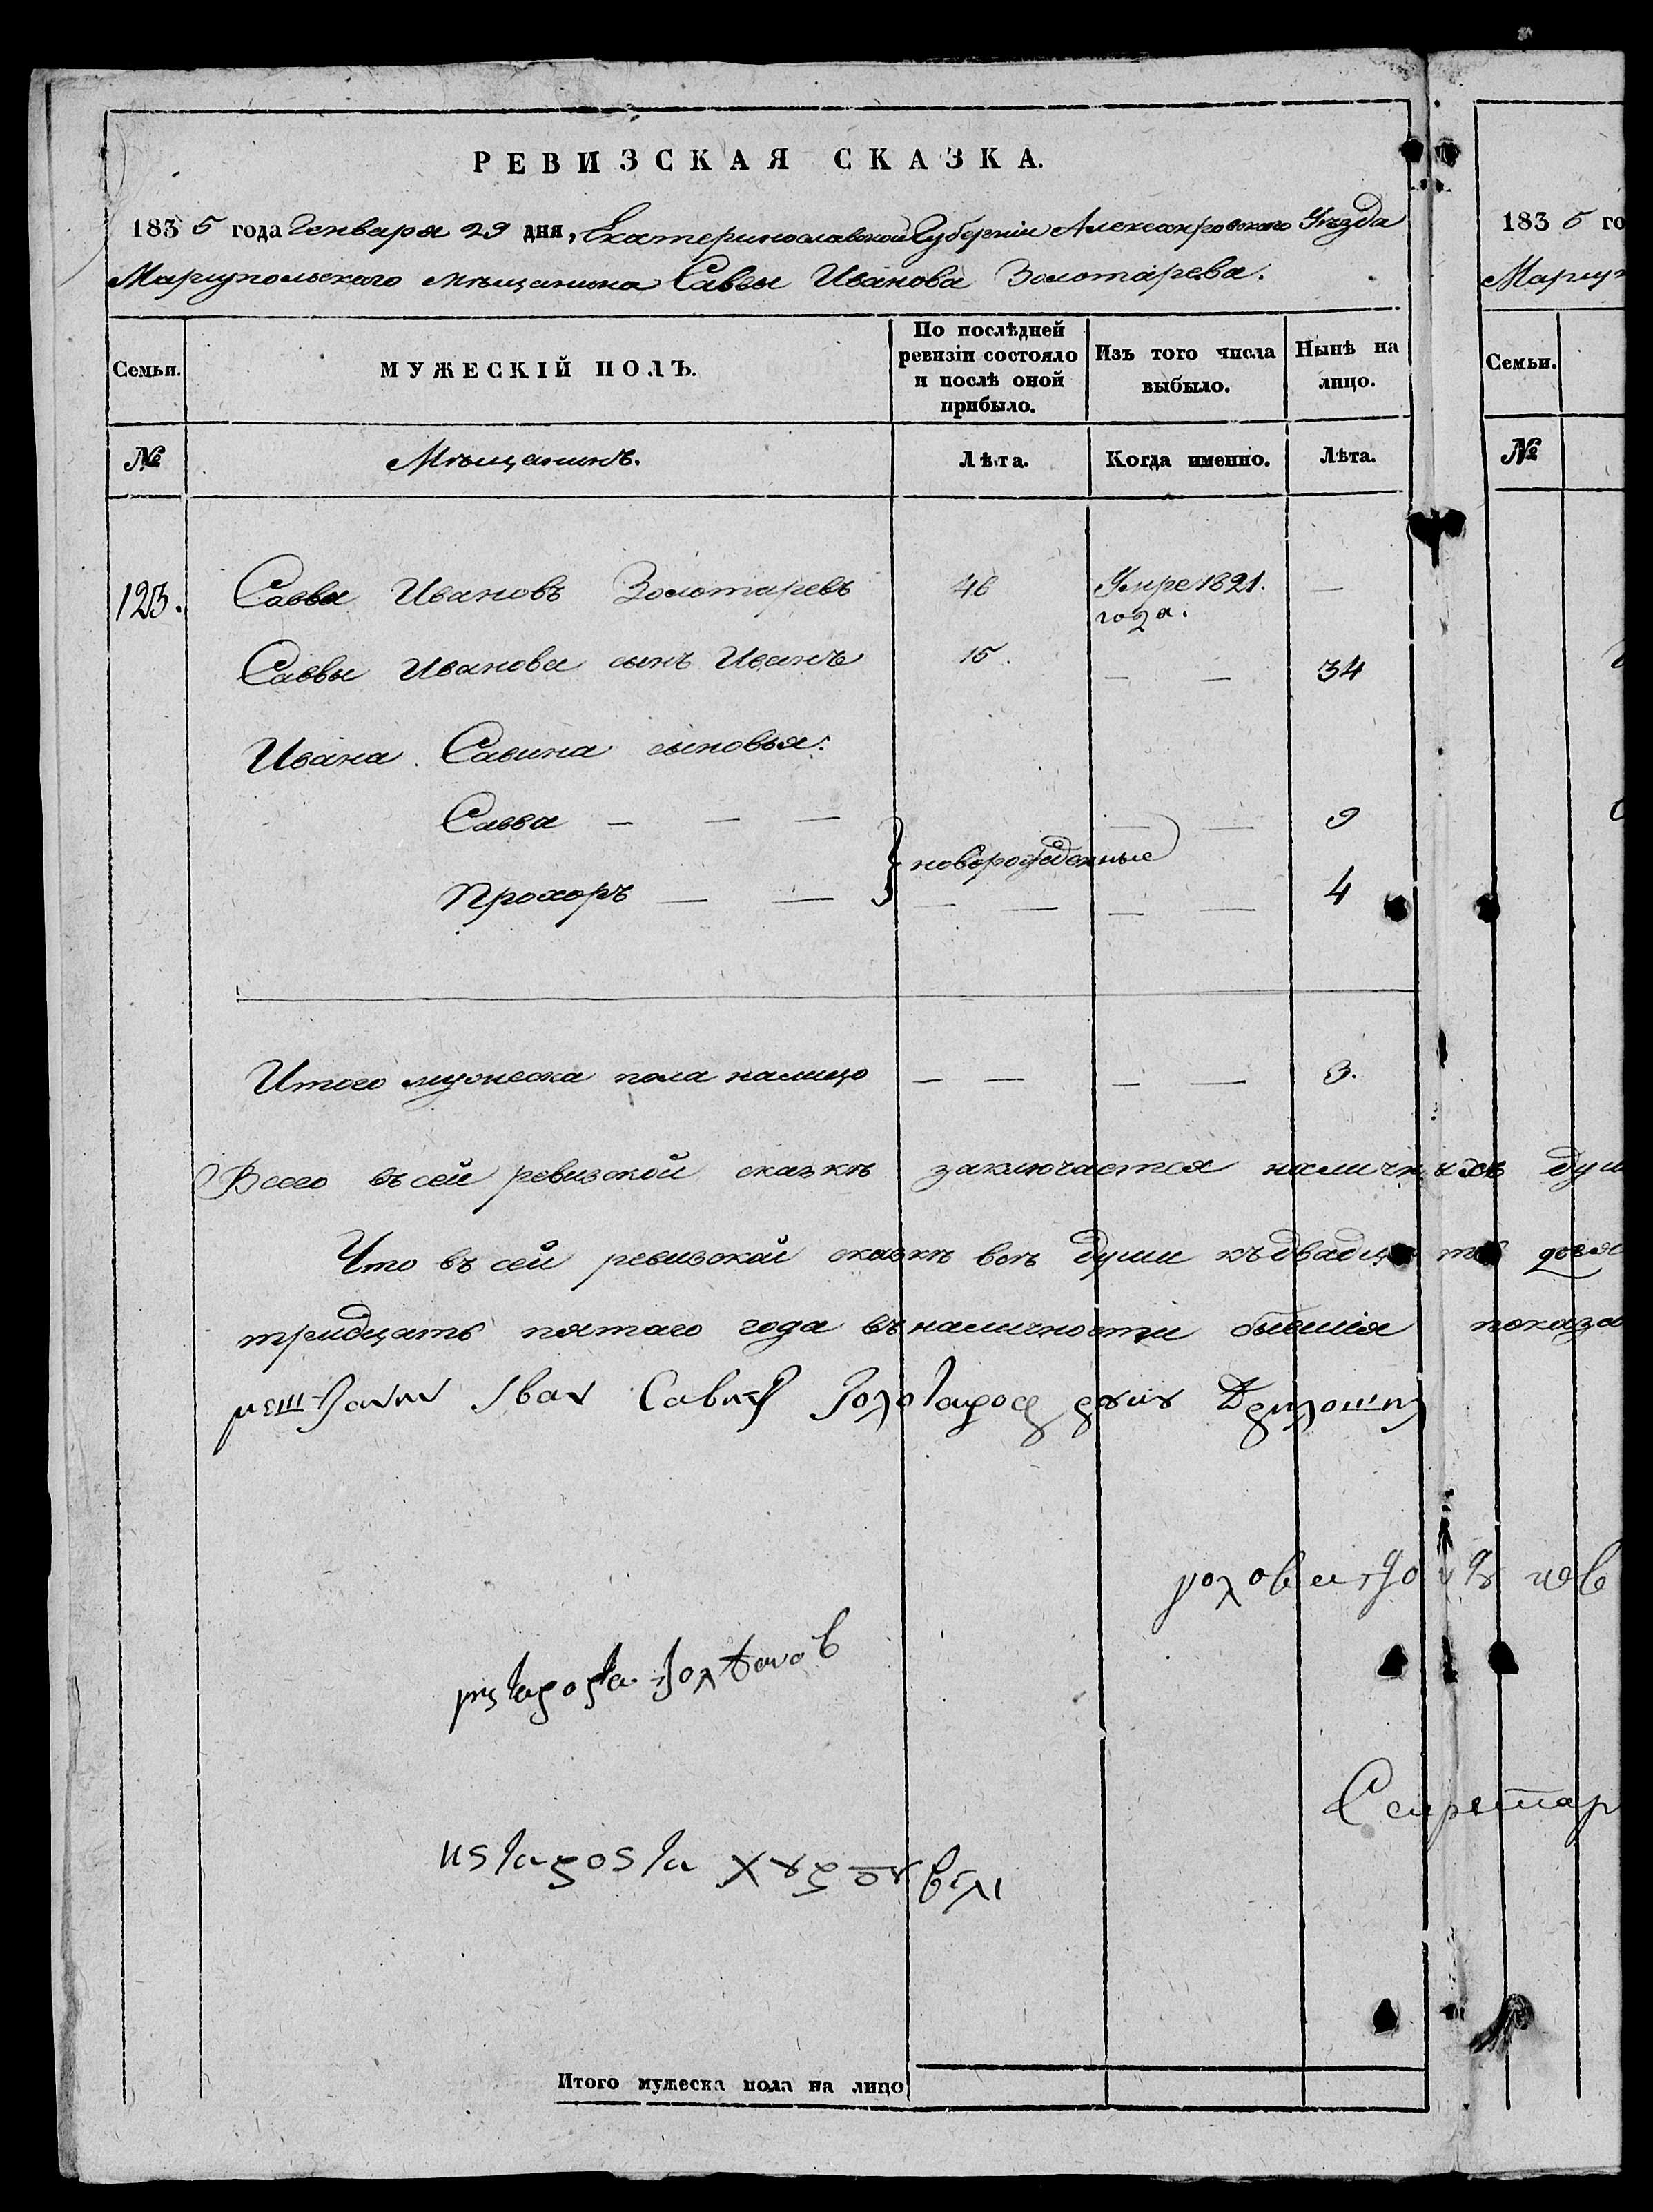 РЕВИЗСКАЯ СКАЗКА.
1835 года Генваря 29 дня, Екатеринославской Губерніи Александровскаго Уѣзда
Маріупольскаго мѣщанина Саввы Иванова Золотарева.
Семьи.
МУЖЕСКІЙ ПОЛЪ.
По послѣдней ревизіи состояло и послѣ оной прибыло.
Изъ того числа выбыло.
Нынѣ на лицо.
№
Мѣщанинъ.
Лѣта.
Когда именно.
Лѣта.
123. Савва Ивановъ Золотаревъ 46 Умре 1821. —
года.
Саввы Иванова сынъ Иванъ 15. — — 34
Ивана Савина сыновья:
Савва — — — — — 9
} новорожденные
Прохоръ — — — — — — 4
Итого мужеска пола налицо — — — — 3.
Всего въ сей ревизской сказкѣ заключается наличныхъ душ
Что въ сей ревизской сказкѣ всѣ души къ двадцать девя
тридцать пятаго года въ наличности бывшія показа
Секретар
Итого мужеска пола на лицо
1835 го
Маріуп
Семьи.
№